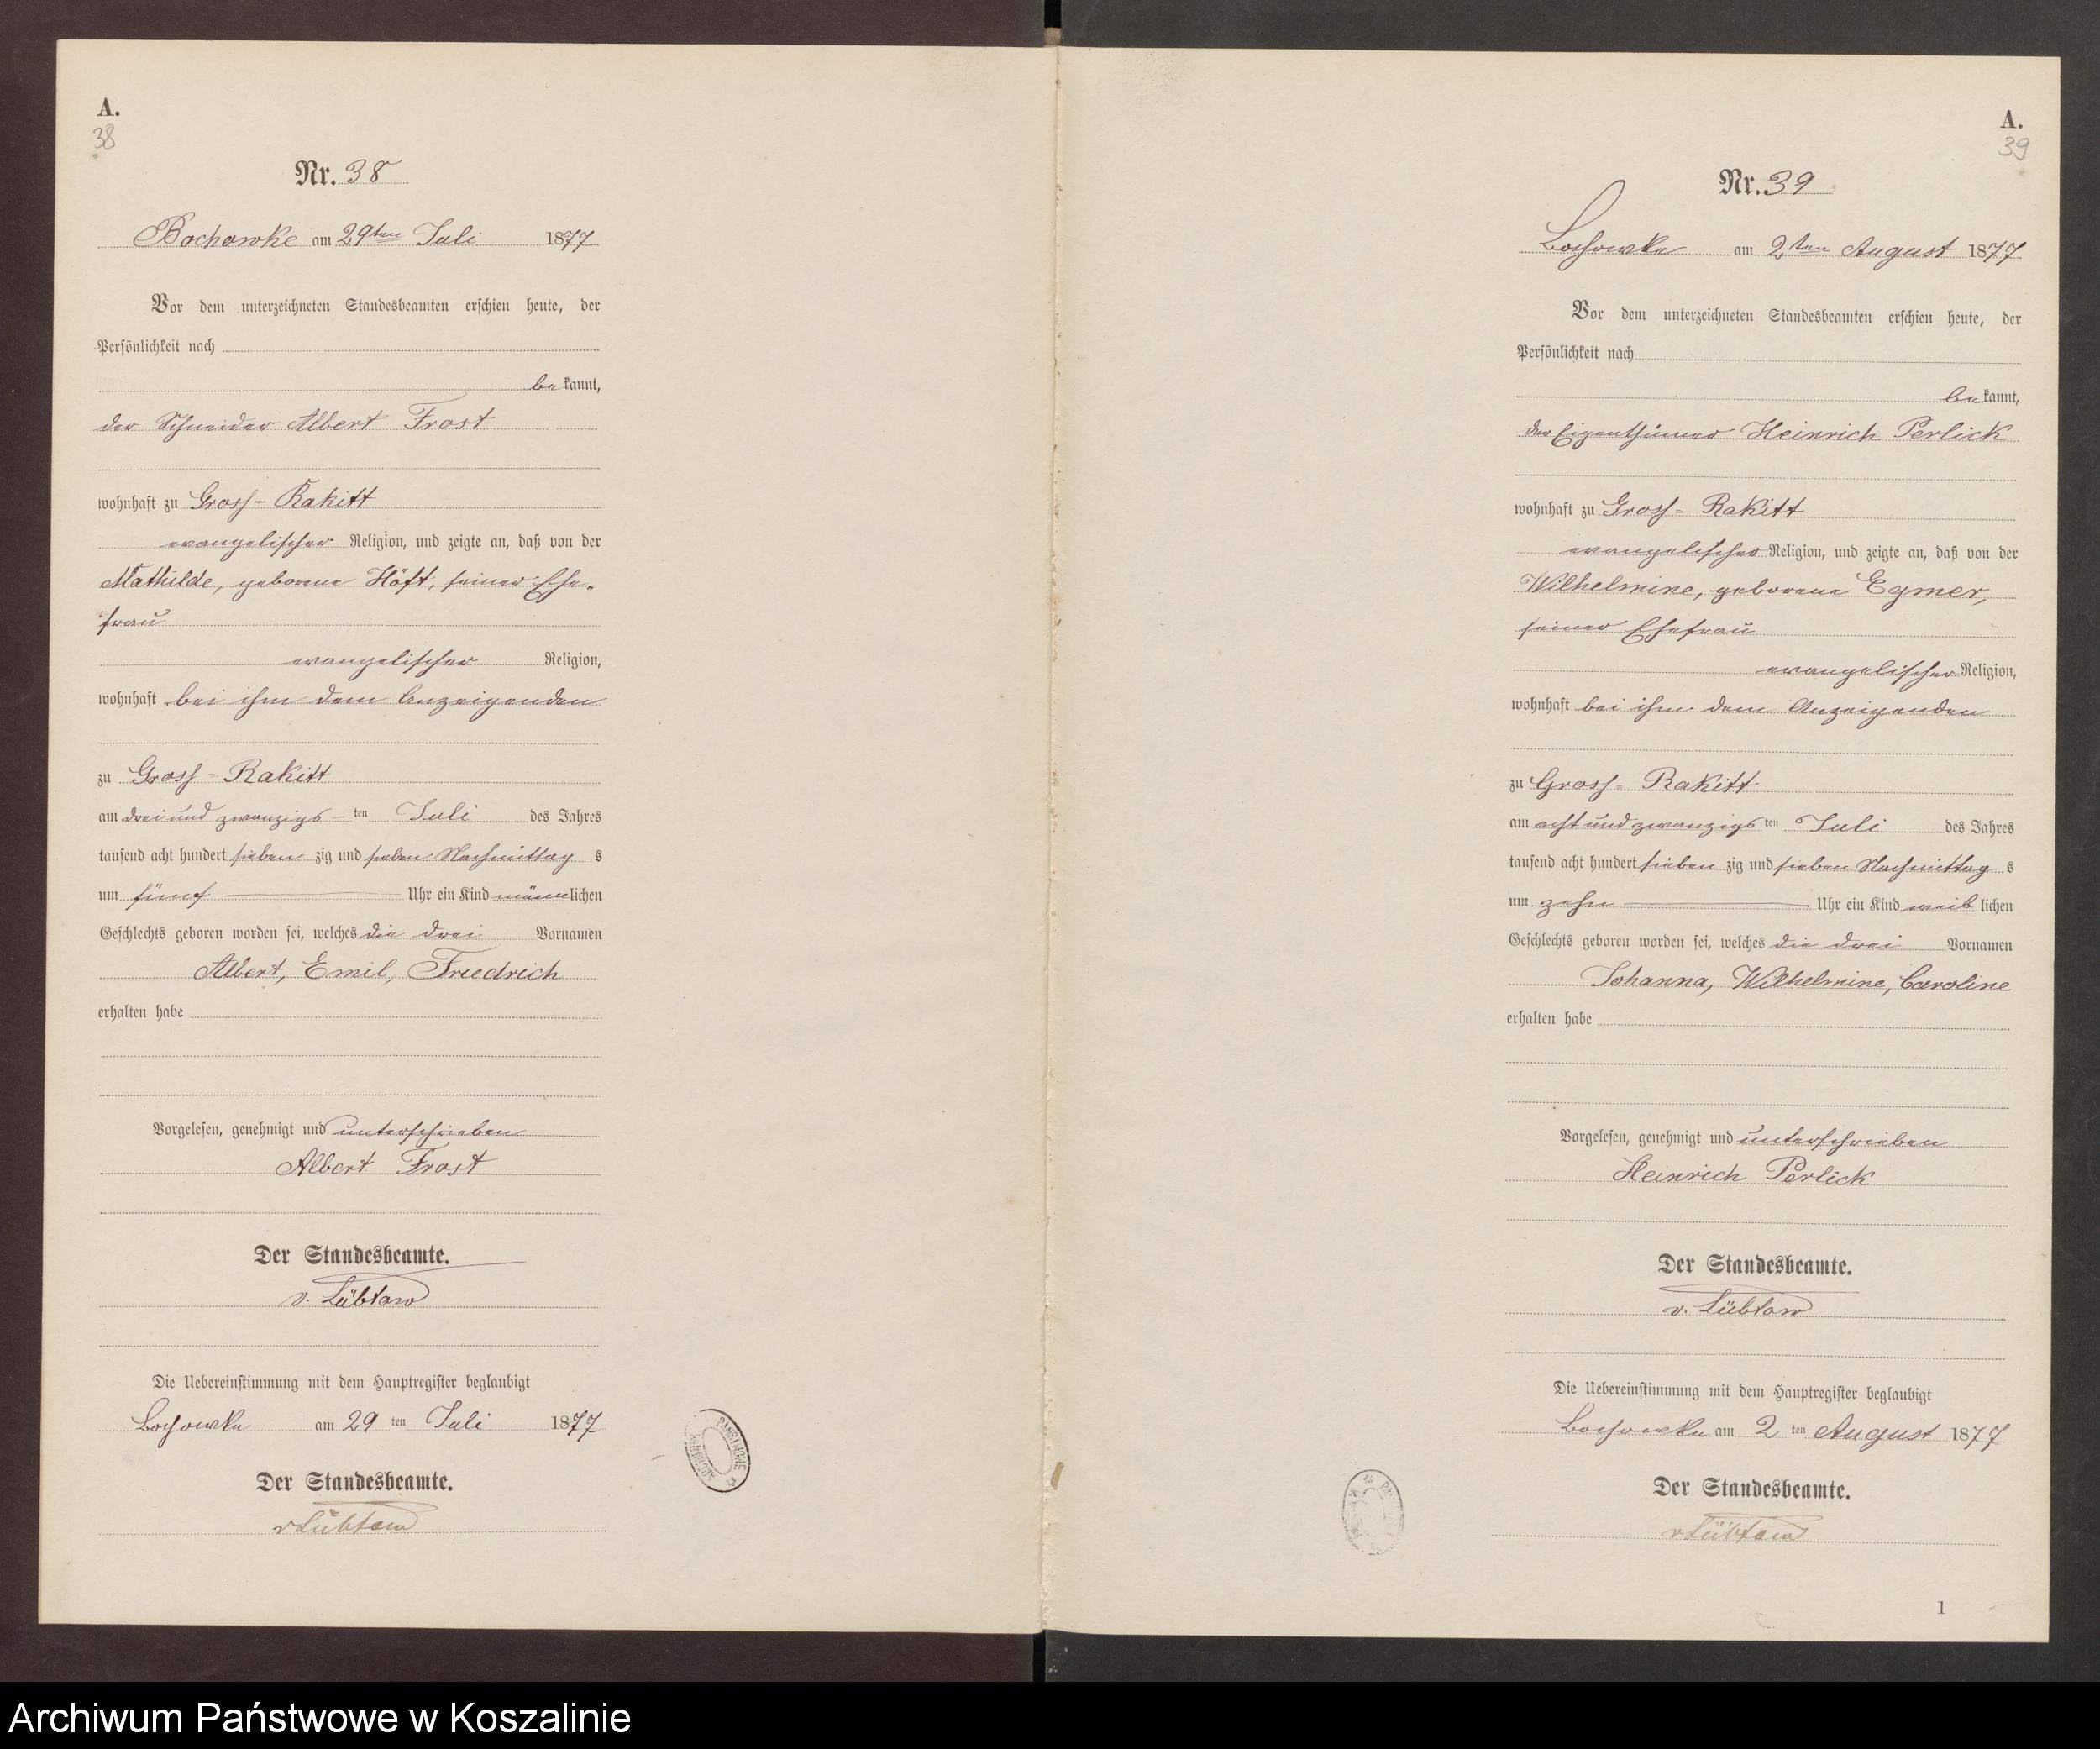 A.
38
Nr. 38
Bochowke am 29ten Juli 1877
Vor dem unterzeichneten Standesbeamten erschien heute, der
Persönlichkeit nach
bekannt,
der Schneider Albert Frost
wohnhaft zu Gross-Rakitt
evangelischer Religion, und zeigte an, daß von der
Mathilde, geborene Höft, seiner Ehe-
frau
evangelischer Religion,
wohnhaft bei ihm dem Anzeigenden
zu Gross-Rakitt
am drei und zwanzigsten Juli des Jahres
tausend acht hundert siebenzig und sieben Nachmittags
um fünf Uhr ein Kind männlichen
Geschlechts geboren worden sei, welches die drei Vornamen
Albert, Emil, Friedrich
erhalten habe
Vorgelesen, genehmigt und unterschrieben
Albert Frost
Der Standesbeamte.
v. Lübtow
Die Uebereinstimmung mit dem Hauptregister beglaubigt
Bochowke am 29ten Juli 1877
Der Standesbeamte.
vLübtow
A.
39
Nr. 39
Bochowke am 2ten August 1877
Vor dem unterzeichneten Standesbeamten erschien heute, der
Persönlichkeit nach
bekannt,
der Eigenthümer Heinrich Perlick
wohnhaft zu Gross-Rakitt
evangelischer Religion, und zeigte an, daß von der
Wilhelmine, geborene Egmer,
seiner Ehefrau
evangelischer Religion,
wohnhaft bei ihm dem Anzeigenden
zu Gross-Rakitt
am acht und zwanzigsten Juli des Jahres
tausend acht hundert siebenzig und sieben Nachmittags
um zehn Uhr ein Kind weiblichen
Geschlechts geboren worden sei, welches die drei Vornamen
Johanna, Wilhelmine, Caroline
erhalten habe
Vorgelesen, genehmigt und unterschrieben
Heinrich Perlick
Der Standesbeamte.
v. Lübtow
Die Uebereinstimmung mit dem Hauptregister beglaubigt
Bochowke am 2ten August 1877
Der Standesbeamte.
vLübtow
1
Archiwum Państwowe w Koszalinie